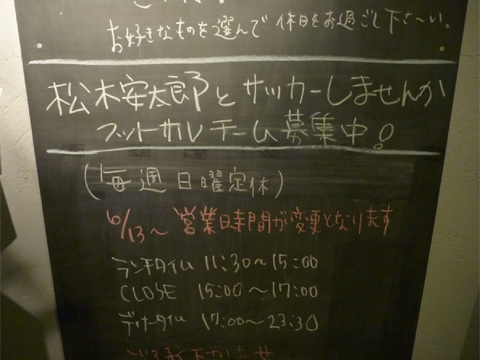 お好きなものを選んで 休日をお過ごし下さ〜い。
松木安太郎とサッカーしませんか
フットサルチーム募集中!
(毎週日曜定休)
6/13〜 営業時間が変更となります
ランチタイム 11:30〜15:00
CLOSE 15:00〜17:00
ディナータイム 17:00〜23:30